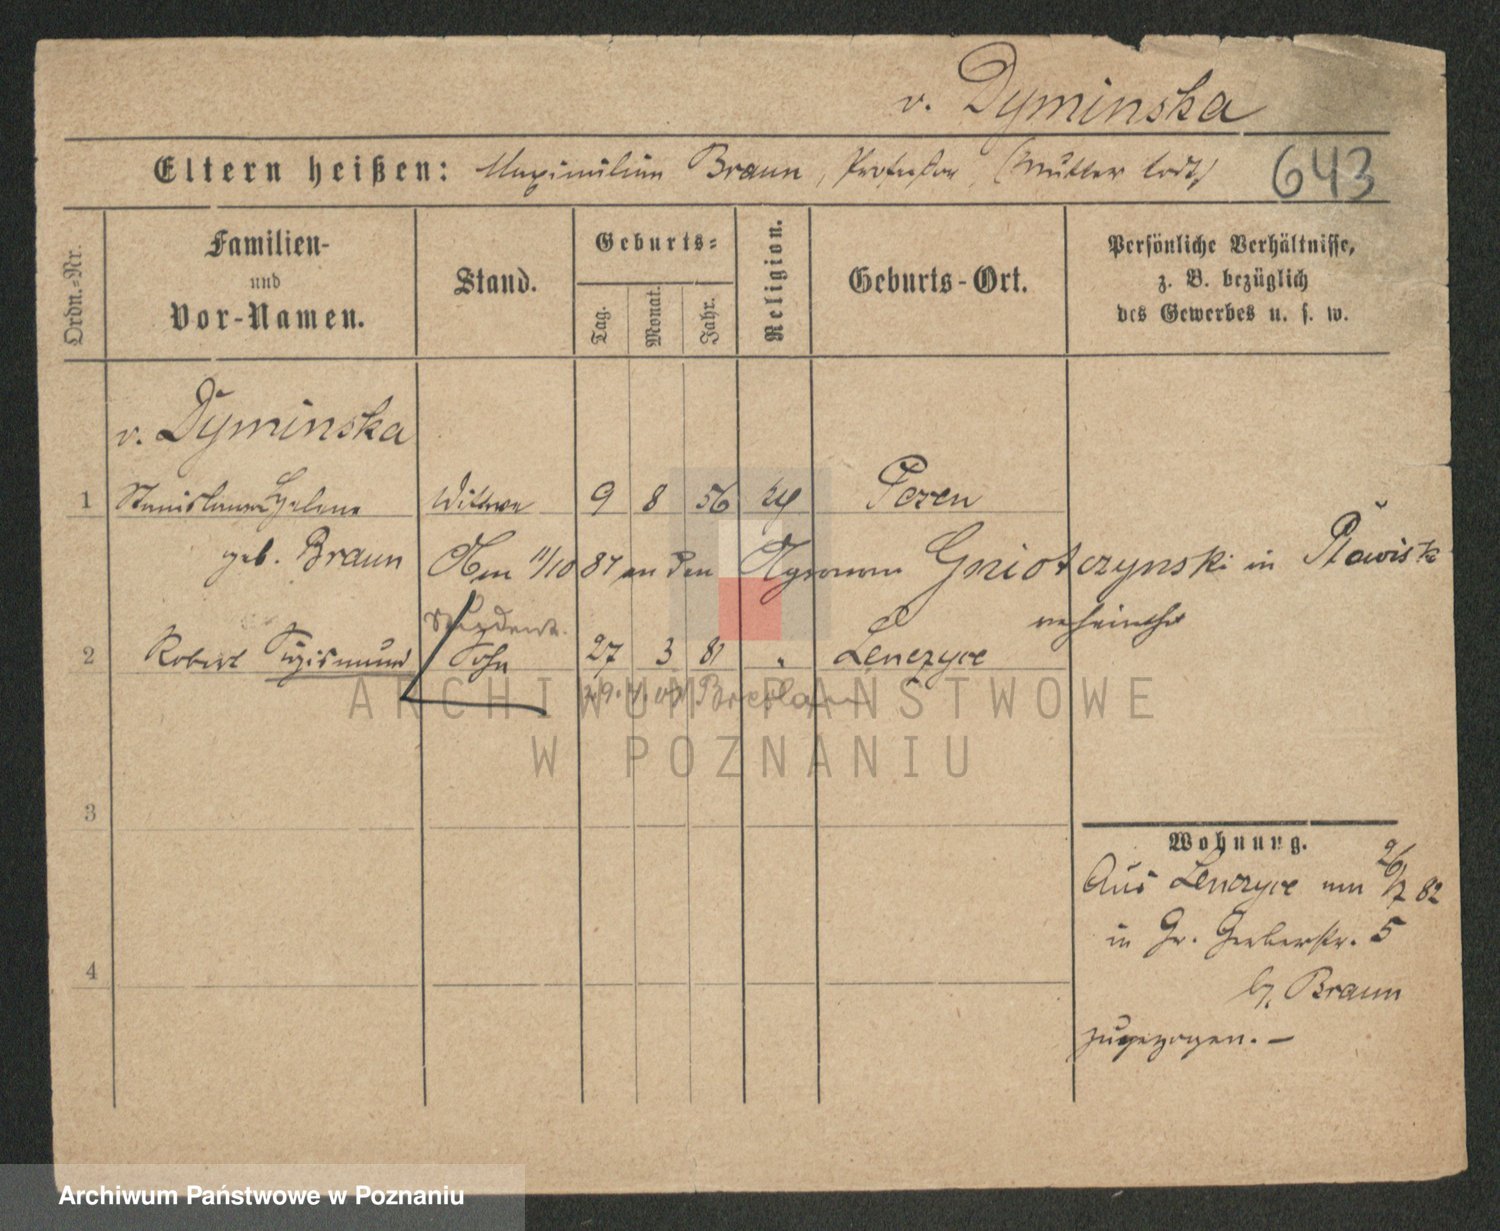 v. Dyminska
Eltern heißen: Maximilian Braun, Professor, (Mutter todt) 643
Ordn.-Nr.
Familien-
und
Vor-Namen.
Stand.
Geburts-
Tag.
Monat.
Jahr.
Religion.
Geburts-Ort.
Persönliche Verhältnisse,
z. B. bezüglich
des Gewerbes u. s. w.
v. Dyminska
1 Stanislawa Helene Wittwe 9 8 56 Posen
geb. Braun Am 11/10 87 an den Agronom Gniotczynski in
verheirathet
Student.
2 Robert Sigismund Sohn 27 3 81 " Lenczyce
Breslau
3
4
Wohnung.
Aus Lenczyce am 26/7 82
in Gr. Gerberstr. 5
b. Braun
zugezogen. —
ARCHIWUM PAŃSTWOWE
W POZNANIU
Archiwum Państwowe w Poznaniu